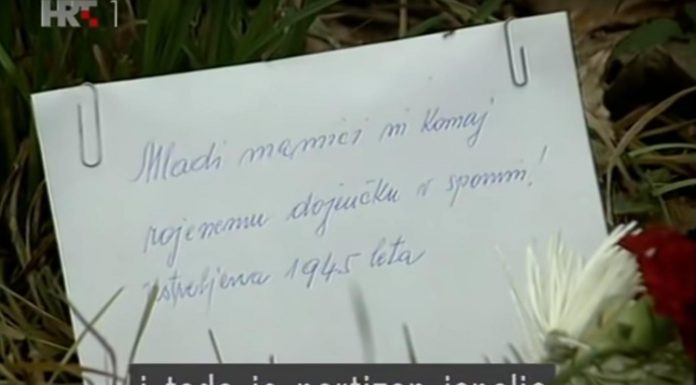 HRT 1
Mladi mamici in komaj
rojenemu dojenčku v spomin!
ustreljena 1945 leta
i tada je partizan ispalio